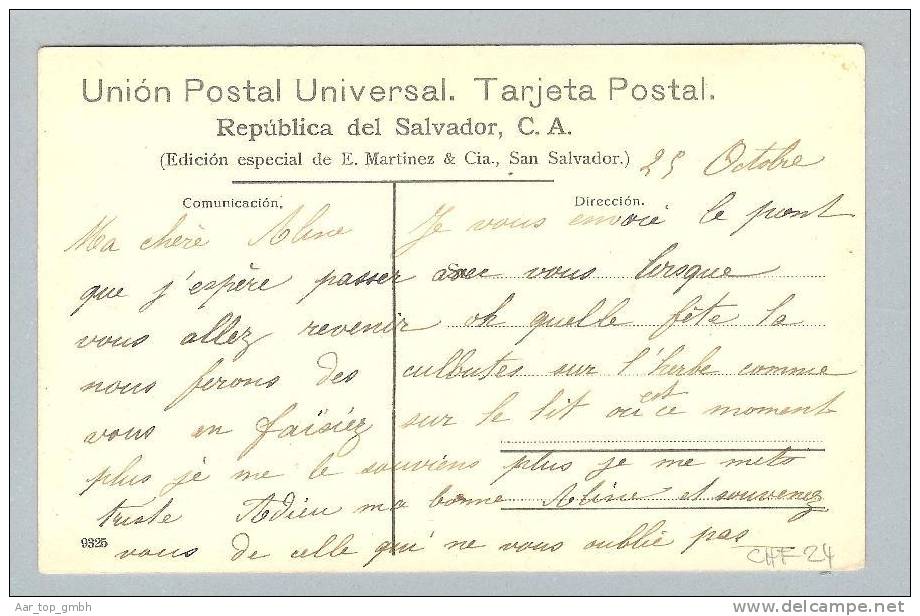 Unión Postal Universal. Tarjeta Postal.
República del Salvador, C. A.
(Edición especial de E. Martinez & Cia., San Salvador.) 25 Octobre
Comunicación. Dirección.
Ma chère Aline Je vous envoie le pont
que j'espère passer avec vous lorsque
vous allez revenir oh quelle fête la
nous ferons des culbutes sur l'herbe comme
vous en faïsiez sur le lit ou est ce moment
plus je me le souviens plus je me mets
triste Adieu ma bonne Aline et souvenez
9325 vous de celle qui ne vous oublie pas
CHF 24
Aar_top_gmbh http://www.delcampe.net